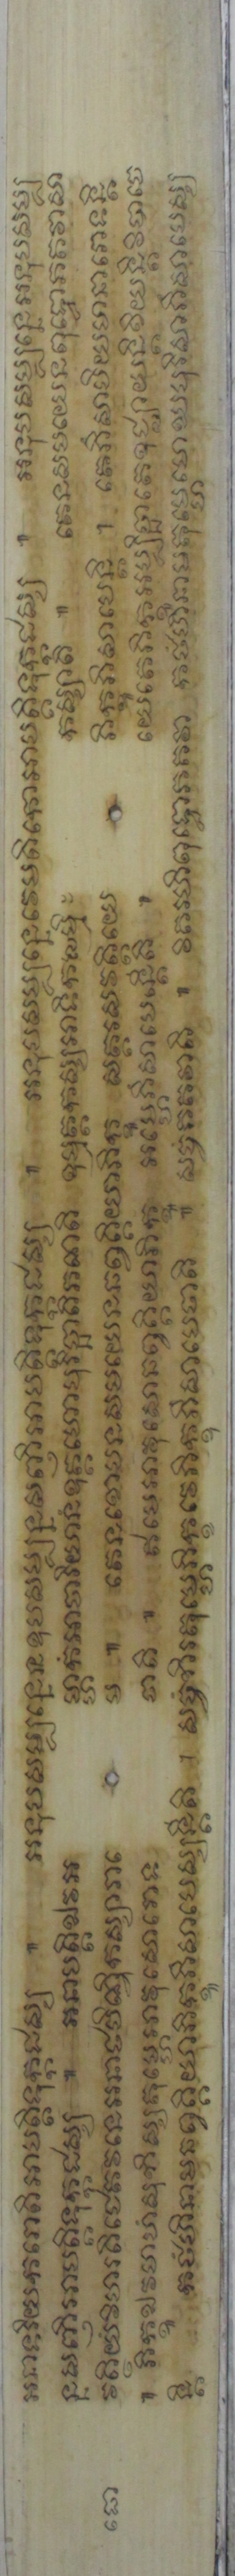 អនាទរិយករោតិអាបត្តិទុក្កដស្ស ៕ អនុបសម្បន្នេឧបសម្បន្នសញ្ញិអាបត្តិទុក្កដស្ស ៕ អនុបសម្បន្នេវេមតិកោអាបត្តិទុក្កដស្ស ៕ អនុបសម្បន្នេអនុបសម្ប
ន្នសញ្ញិអាបត្តិទុក្កដស្ស ៕ អនាបត្តិឯវអ ម្ហាកំអាចរិយានំឧគ្គហោបរិបុច្ឆាតិភណតិ ឧម្មត្តកស្សអាទិកម្មិ កស្សាតិ ៕ តេនសមយេនពុទ្ធោភគវាសា
ធោ វត្ថិយំវិហរតិជេតវនេអនាថបិណ្ឌិកស្សារាមេ ៕ តេនខោបនសមយេនឆព្វគ្គិយាភិក្ខូ សត្តរសវគ្គិយេ ភិក្ខូភិសាបេន្តិ ៕ តេភិសាបិយមានារោទន្តិ
៕ ភិក្ខូឯវមាហំសុកិស្សតុម្ហេអាវុសោរោទ ថាតិ ៕ ឥមេអាវុសោឆព្វគ្គិយាភិក្ខូ អម្ហេភិសាបេន្តីតិ ៕ យេតេភិក្ខូអប្បិច្ឆាតេឧជ្ឈាយន្តិខិយន្តិវិបាចេ
ន្តិ កថំហិនាមឆព្វគ្គិយាភិក្ខូភិសាបេស្សន្តីតិ ៕ សច្ចំកិរតុម្ហេភិក្ខវេភិក្ខុភិសាបេថាតិ ៕ សច្ចំភគវាតិ ៕ វិគរហិពុទ្ធោភគវា កថំហិនាមតុម្ហេមោឃបុរិសាភិសាបេស្ស